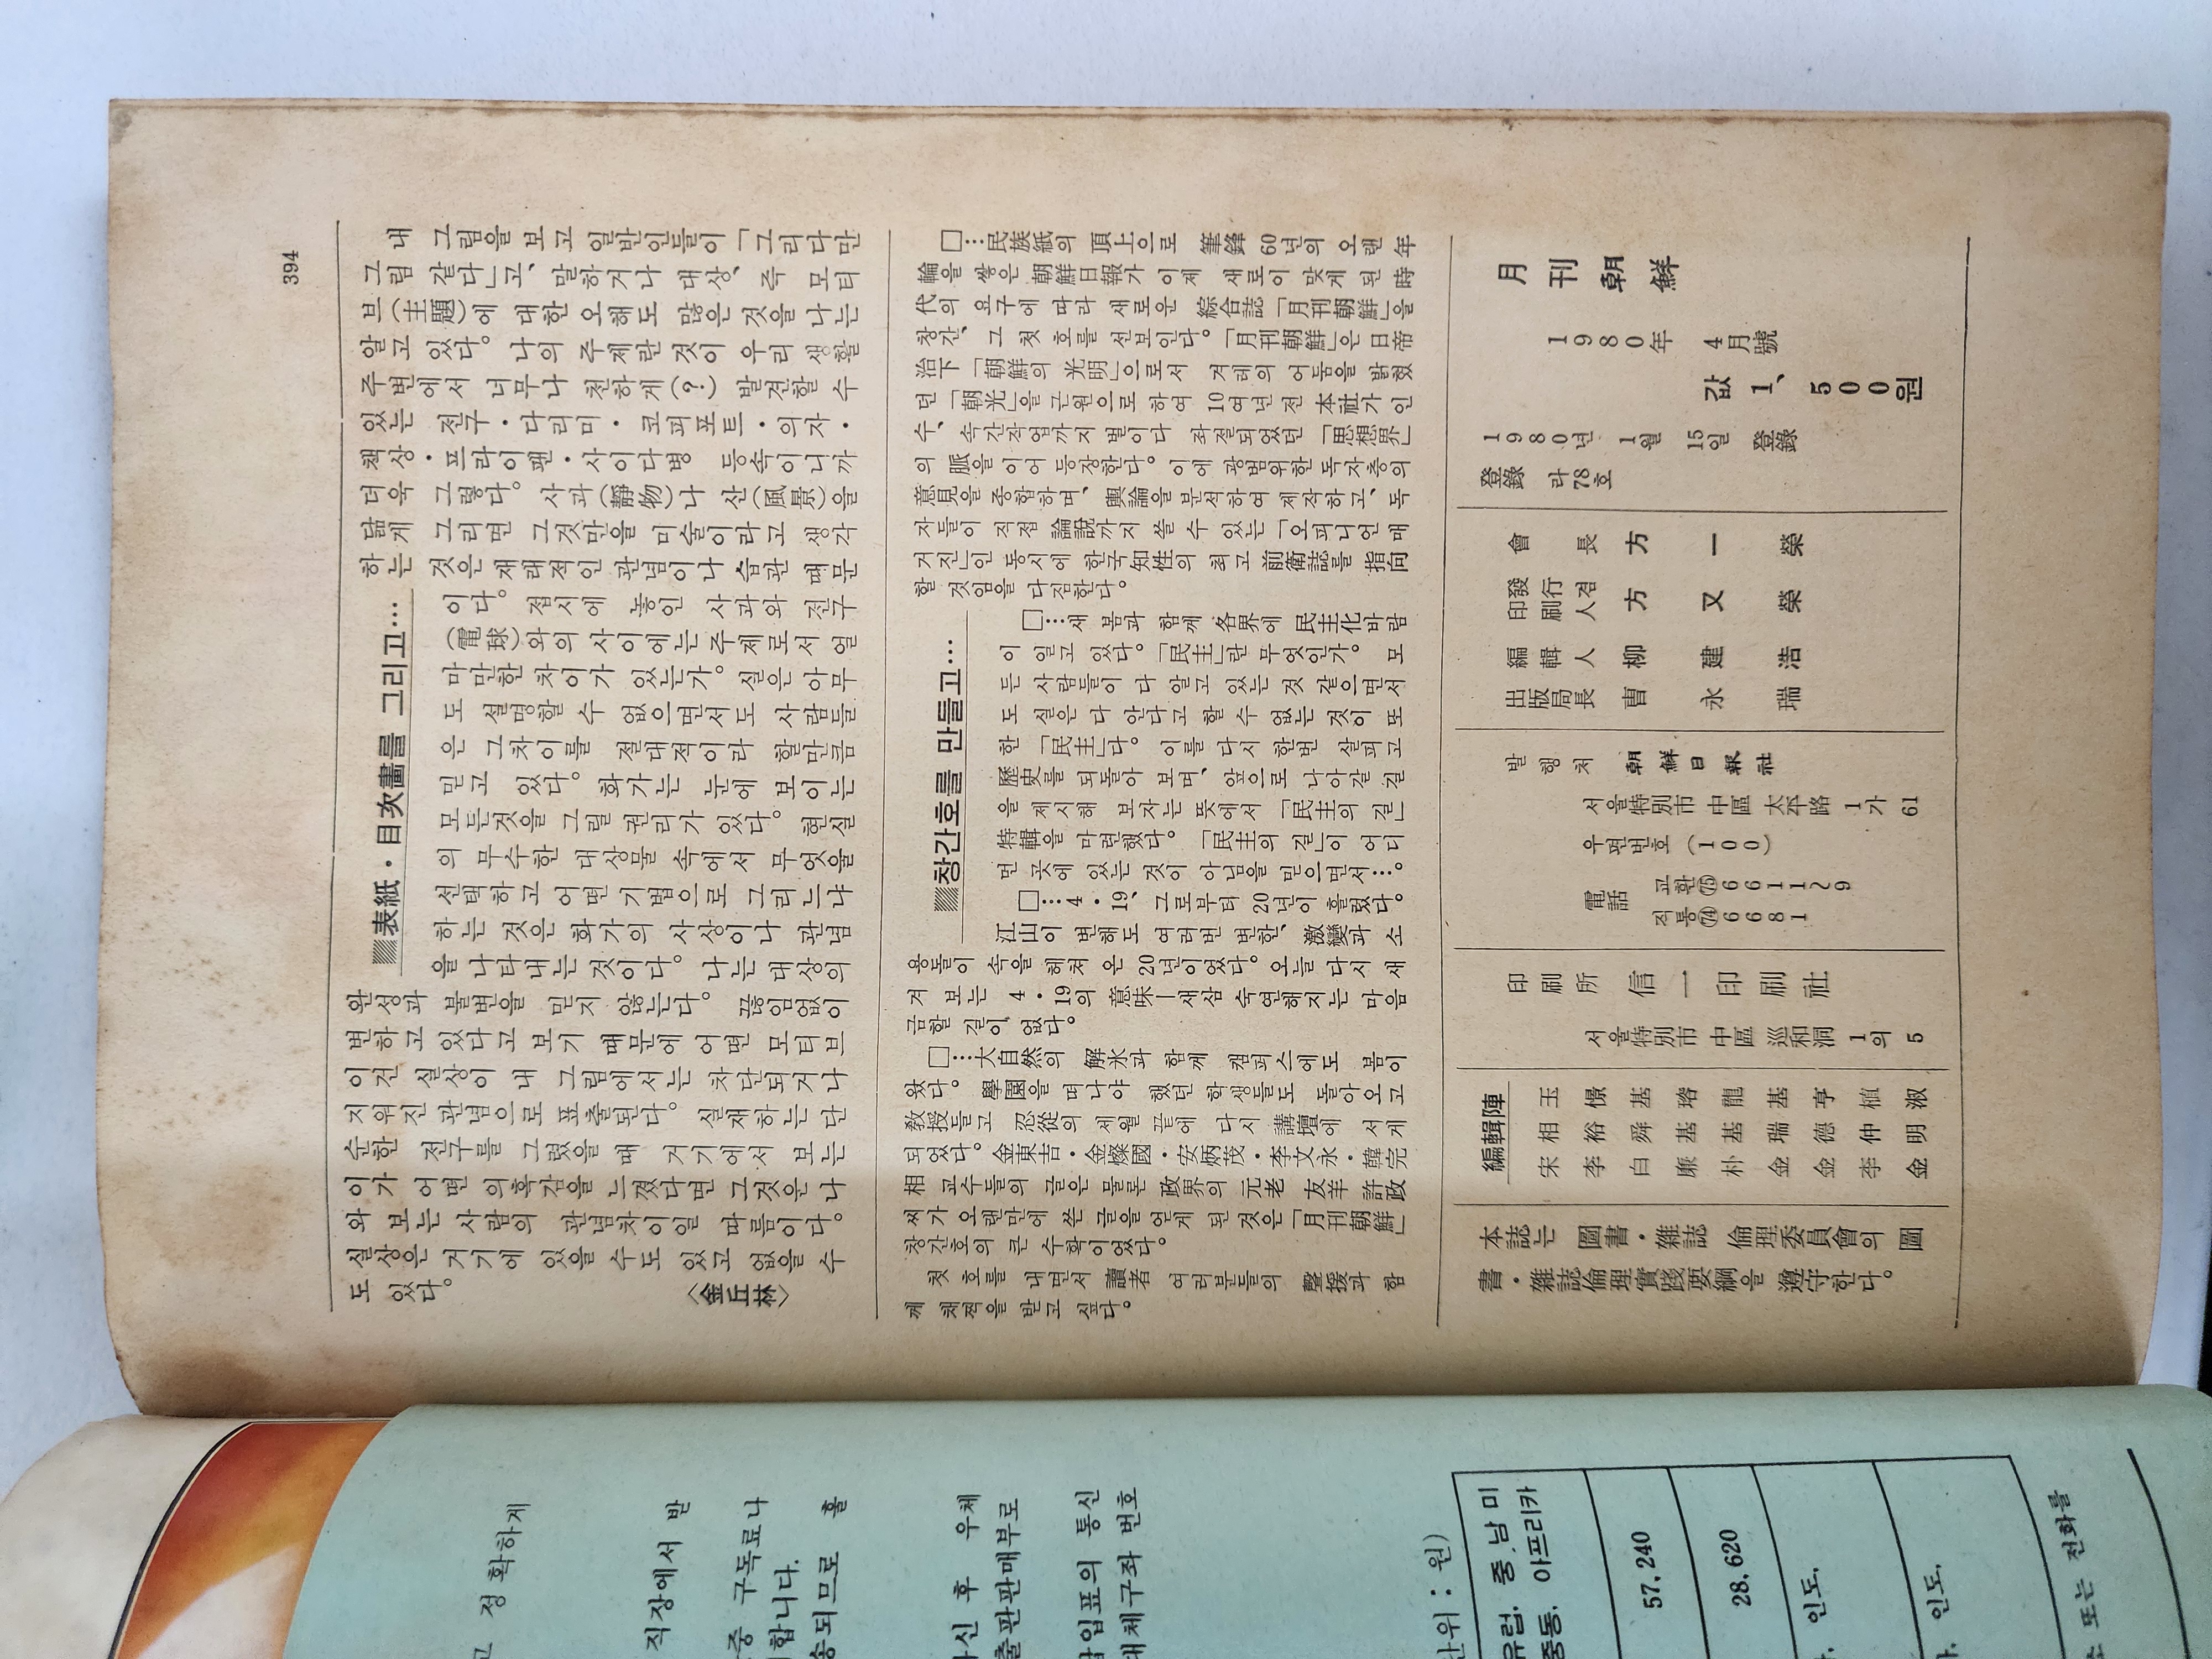 394
▨表紙・目次畵를 그리고…
내 그림을 보고 일반인들이 「그리다만
그림 같다」고、말하거나 대상、즉 모티
브(主題)에 대한 오해도 많은 것을 나는
알고 있다。 나의 주제란 것이 우리 생활
주변에서 너무나 천하게(?) 발견할 수
있는 전구・다리미・코피포트・의자・
책상・프라이팬・사이다병 등속이니까
더욱 그렇다。 사과(靜物)나 산(風景)을
닮게 그리면 그것만을 미술이라고 생각
하는 것은 재래적인 관념이나 습관 때문
이다。 접시에 놓인 사과와 전구
(電球)와의 사이에는 주제로서 얼
마만한 차이가 있는가。 실은 아무
도 설명할 수 없으면서도 사람들
은 그차이를 절대적이라 할만큼
믿고 있다。 화가는 눈에 보이는
모든것을 그릴 권리가 있다。 현실
의 무수한 대상물 속에서 무엇을
선택하고 어떤 기법으로 그리느냐
하는 것은 화가의 사상이나 관념
을 나타내는 것이다。 나는 대상의
완성과 불변을 믿지 않는다。 끊임없이
변하고 있다고 보기 때문에 어떤 모티브
이건 실상이 내 그림에서는 차단되거나
지워진 관념으로 표출된다。 실재하는 단
순한 전구를 그렸을 때 거기에서 보는
이가 어떤 의혹감을 느꼈다면 그것은 나
와 보는 사람의 관념차이일 따름이다。
실상은 거기에 있을 수도 있고 없을 수
도 있다。 〈金丘林〉
▨창간호를 만들고…
□…民族紙의 頂上으로 筆鋒 60년의 오랜 年
輪을 쌓은 朝鮮日報가 이제 새로이 맞게 된 時
代의 요구에 따라 새로운 綜合誌 「月刊朝鮮」을
창간、 그 첫 호를 선보인다。 「月刊朝鮮」은 日帝
治下 「朝鮮의 光明」으로서 겨레의 어둠을 밝혔
던 「朝光」을 근원으로 하여 10여년전 本社가 인
수、 속간작업까지 벌이다 좌절되었던 「思想界」
의 脈을 이어 등장한다。 이에 광범위한 독자층의
意見을 종합하며、 輿論을 분석하여 제작하고、 독
자들이 직접 論說까지 쓸 수 있는 「오피니언 매
거진」인 동시에 한국知性의 최고 前衛誌를 指向
할 것임을 다짐한다。
□…새 봄과 함께 各界에 民主化바람
이 일고 있다。 「民主」란 무엇인가。 모
든 사람들이 다 알고 있는 것 같으면서
도 실은 다 안다고 할 수 없는 것이 또
한 「民主」다。 이를 다시 한번 살피고
歷史를 되돌아 보며、 앞으로 나아갈 길
을 제시해 보자는 뜻에서 「民主의 길」
特輯을 마련했다。 「民主의 길」이 어디
먼 곳에 있는 것이 아님을 믿으면서…。
□…4・19、 그로부터 20년이 흘렀다。
江山이 변해도 여러번 변한、 激變과 소
용돌이 속을 헤쳐 온 20년이었다。오늘 다시 새
겨 보는 4・19의 意味—새삼 숙연해지는 마음
금할 길이 없다。
□…大自然의 解氷과 함께 캠퍼스에도 봄이
왔다。 學園을 떠나야 했던 학생들도 돌아오고
敎授들고 忍從의 세월 끝에 다시 講壇에 서게
되었다。 金東吉・金燦國・安炳茂・李文永・韓完
相 교수들의 글은 물론 政界의 元老 友羊 許政
씨가 오랜만에 쓴 글을 얻게 된 것은 「月刊朝鮮」
창간호의 큰 수확이었다。
첫 호를 내면서 讀者 여러분들의 聲援과 함
께 채찍을 받고 싶다。
月刊朝鮮
1980年 4月號
값 1、500원
1980년 1월 15일 登錄
登錄 라78호
會長 方一榮
發行겸印刷人 方又榮
編輯人 柳建浩
出版局長 曺永瑞
발행처 朝鮮日報社
서울特別市 中區 太平路 1가 61
우편번호 (100)
電話 교환(75)6611~9
직통(74)6681
印刷所 信一印刷社
서울特別市 中區 巡和洞 1의 5
編輯陣
宋相玉
李裕憬
白舜基
廉基瑢
朴基龍
金瑞基
金德亨
李仲植
金明淑
本誌는 圖書・雜誌 倫理委員會의 圖
書・雜誌倫理實踐要綱을 遵守한다。
고 정확하게
직장에서 받
중 구독료나
합니다.
송되므로 홀
하신 후 우체
출판판매부로
입표의 통신
대체구좌 번호
단위 : 원)
유럽. 중.남미
중동. 아프리카
57.240
28.620
인도.
인도.
소 또는 전화를